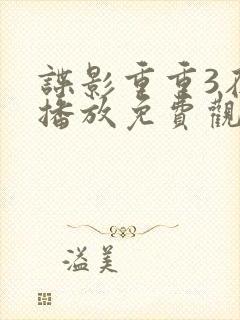 諜影重重3在
播放免費觀
溢美